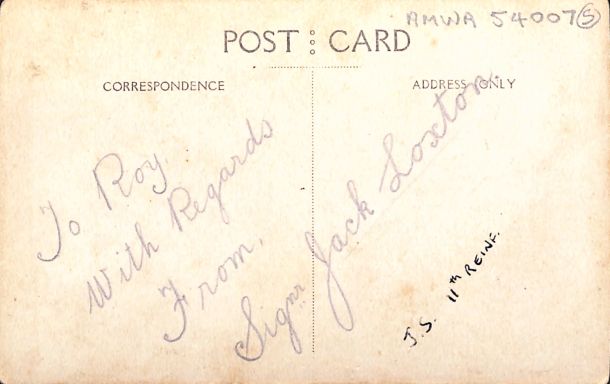 AMWA 54007 S
POST CARD
CORRESPONDENCE
ADDRESS ONLY
To Roy
With Regards
From,
Signr Jack Loxton.
J.S. 11th REINF.